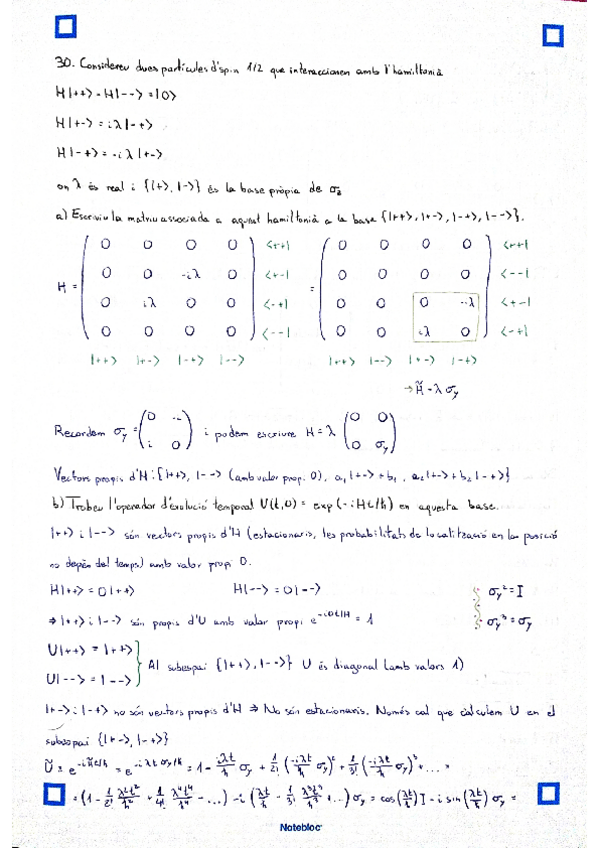 30. Considereu dues partícules d'spin 1/2 que interaccionen amb l'hamiltonià
H|++> = H|--> = |0>
H|+-> = iλ|-+>
H|-+> = -iλ|+->
on λ és real i {|+>, |->} és la base pròpia de σz
a) Escriviu la matriu associada a aquest hamiltonià a la base {|++>, |+->, |-+>, |-->}.
0 0 0 0 <++| 0 0 0 0 <++|
0 0 -iλ 0 <+-| 0 0 0 0 <--|
H = =
0 iλ 0 0 <-+| 0 0 0 -iλ <+-|
0 0 0 0 <--| 0 0 iλ 0 <-+|
|++> |+-> |-+> |--> |++> |--> |+-> |-+>
→ H̃ = λ σy
Recordem σy = (0 -i; i 0) i podem escriure H = λ (0 0; 0 σy)
Vectors propis d'H: {|++>, |--> (amb valor propi 0), a₁|+-> + b₁ , a₂|+-> + b₂|-+>}
b) Trobeu l'operador d'evolució temporal U(t,0) = exp(-iHt/ħ) en aquesta base.
|++> i |--> són vectors propis d'H (estacionaris, les probabilitats de localització en la posició
no depèn del temps) amb valor propi 0.
H|++> = 0|++> H|--> = 0|--> σy² = I
⇒ |++> i |--> són propis d'U amb valor propi e^-i0t/ħ = 1 σy³ = σy
U|++> = |++>
Al subespai {|++>, |-->} U és diagonal (amb valors 1)
U|--> = |-->
|+-> i |-+> no són vectors propis d'H ⇒ No són estacionaris. Només cal que calculem U en el
subespai {|+->, |-+>}
Ũ = e^-iH̃t/ħ = e^-iλt σy/ħ = 1 - iλt/ħ σy + 1/2! (-iλt/ħ σy)² + 1/3! (-iλt/ħ σy)³ + ... =
= (1 - 1/2! λ²t²/ħ² + 1/4! λ⁴t⁴/ħ⁴ - ...) - i (λt/ħ - 1/3! λ³t³/ħ³ + ...) σy = cos(λt/ħ) I - i sin(λt/ħ) σy =
Notebloc